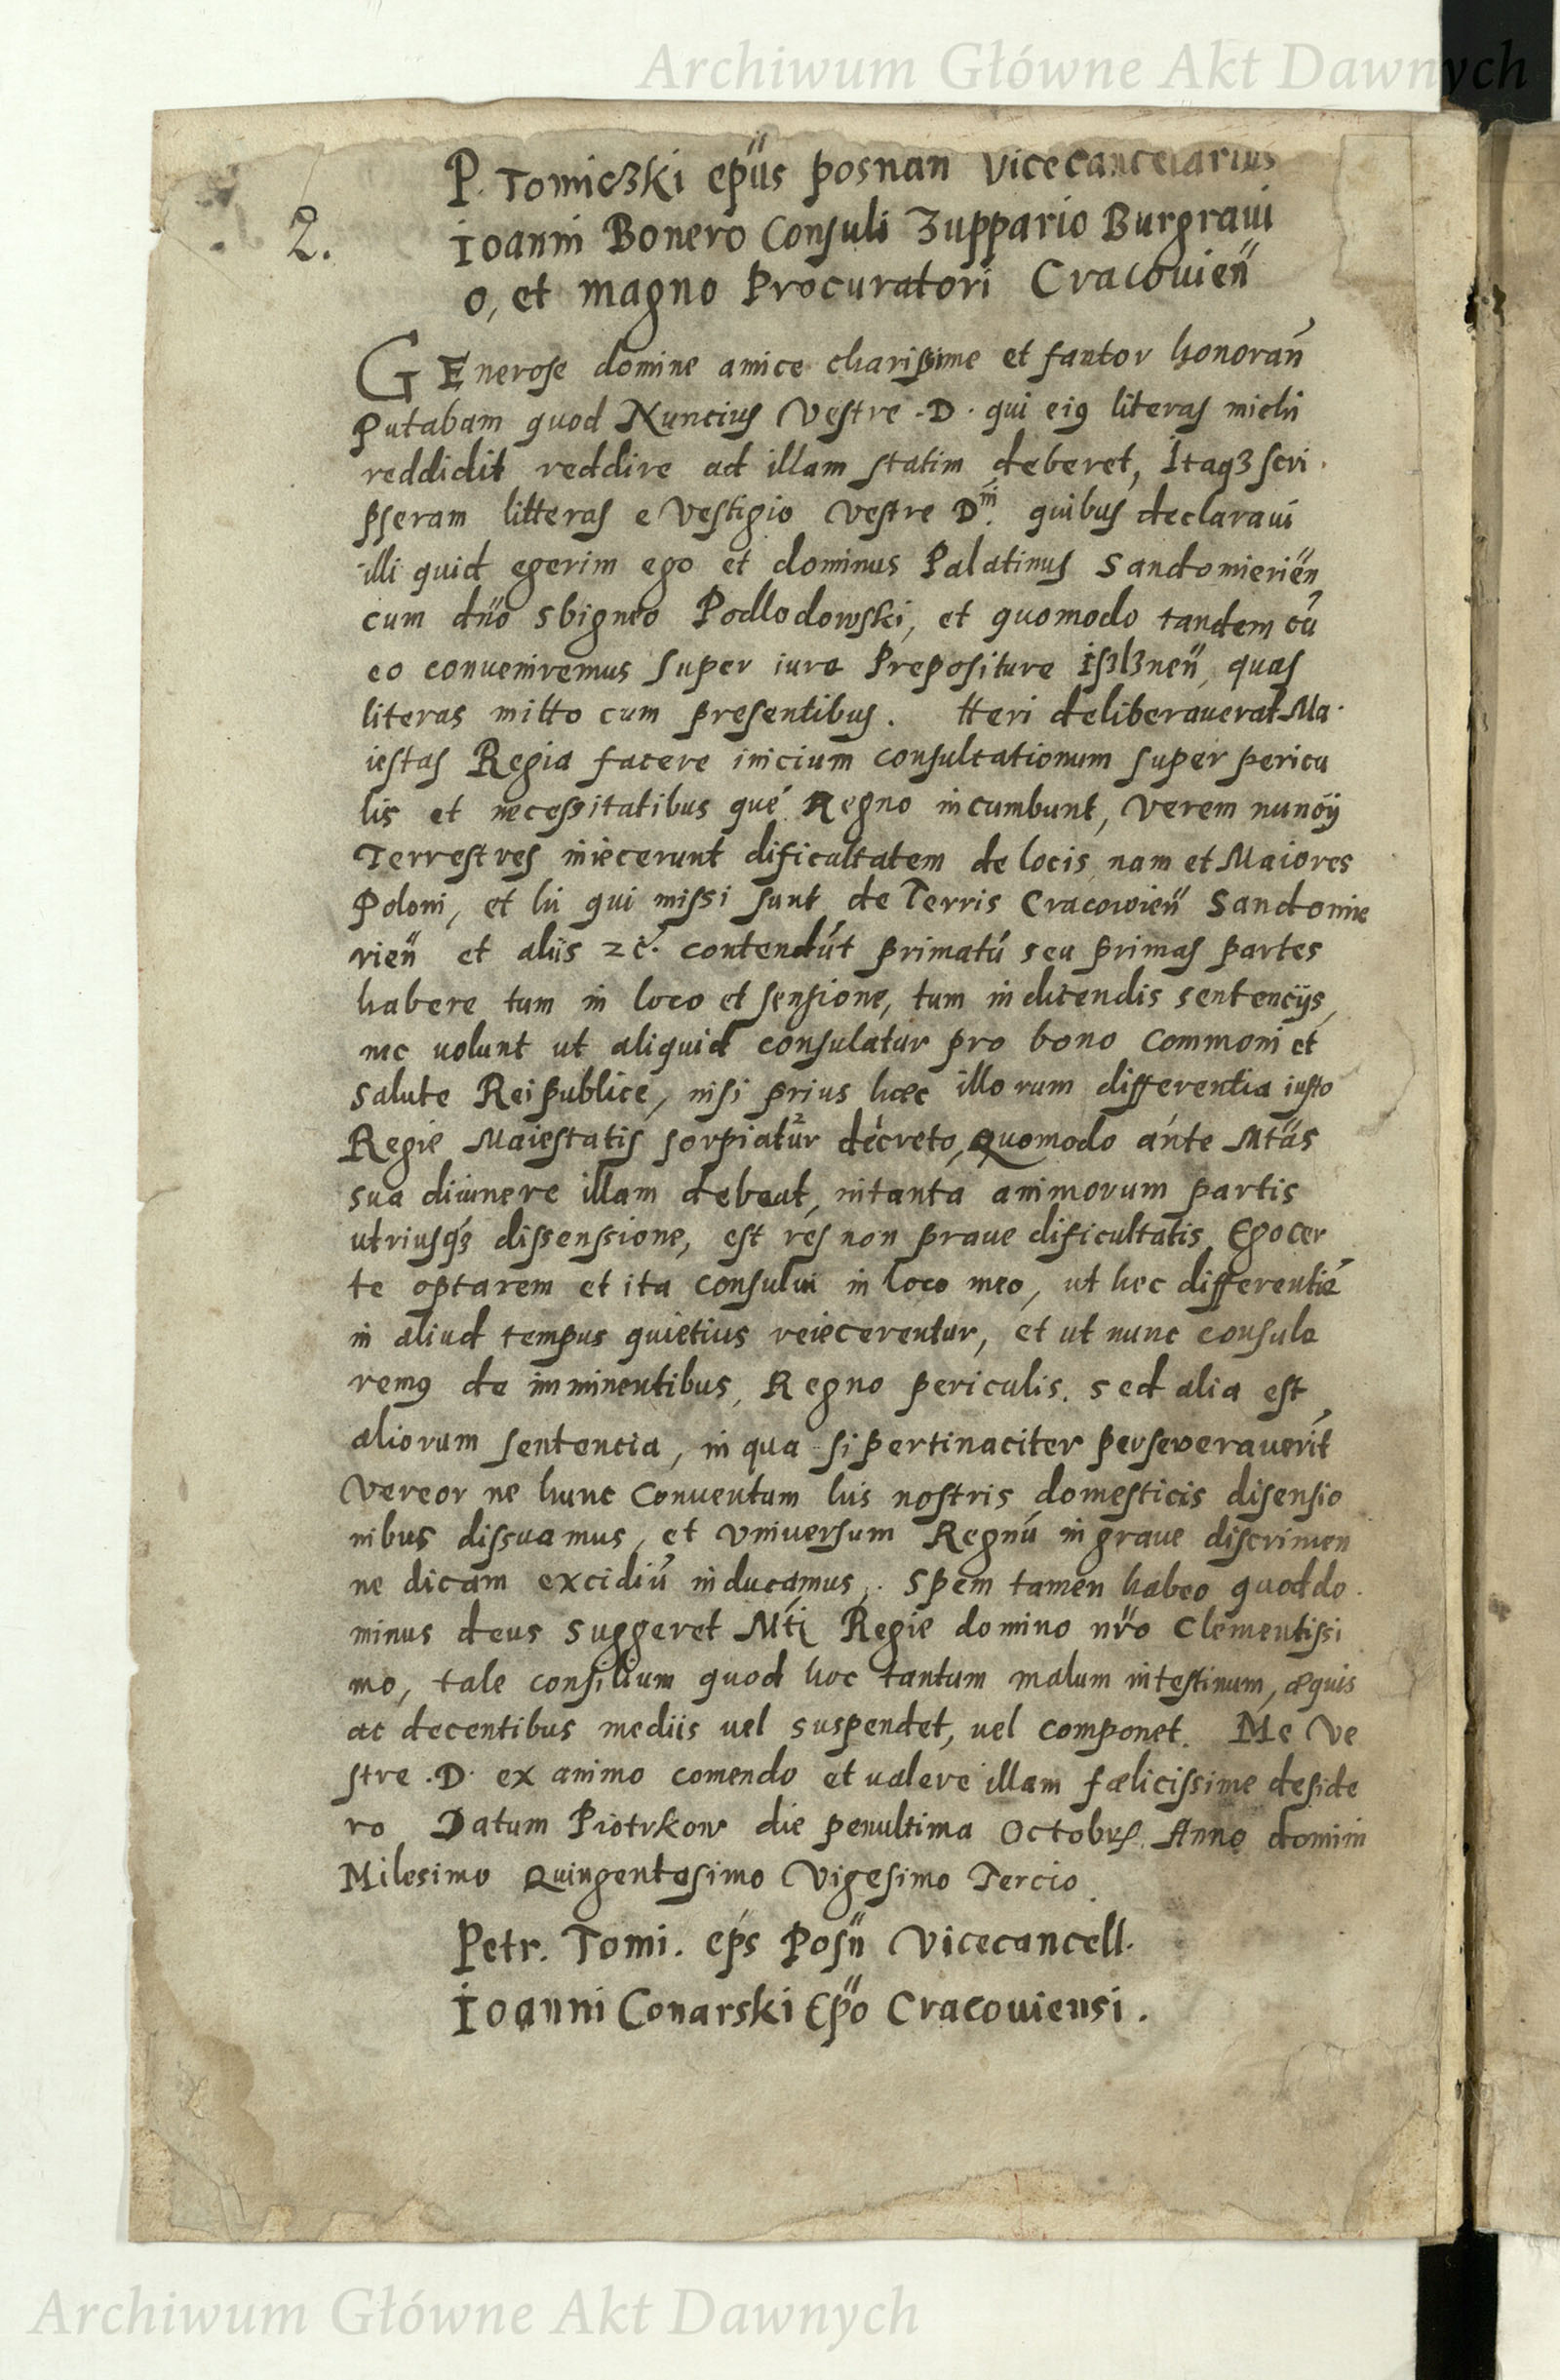 Archiwum Główne Akt Dawnych
P. Tomiczki ep̈us posnan Vicecancelarius
2.
Ioanni Bonero Consuli Zuppario Burgraui
o, et magno Procuratori Cracouien̈
GEnerose domine amice charissime et fautor honorań
Putabam quod Nuncius Vestre .D. qui eiꝰ literas michi
reddidit reddire ad illam statim deberet, Itaqꝫ scri
pseram litteras e vestigio vestre D. quibus declaraui
illi quid egerim ego et dominus Palatinus Sandomierień
cum dn̈o Sbigneo Podlodowski, et quomodo tandem cū
eo conueniremus super iure Prepositure quas
literas mitto cum presentibus. Heri deliberauerat Ma
iestas Regia facere inicium consultationum super pericu
lis et necessitatibus que Regno incumbunt, verem nuncij
Terrestres iniecerunt dificultatem de locis nam et Maiores
Poloni, et hi qui missi sunt de Terris Cracowień Sandomie
rień et aliis ꝛc̃. contendūt primatū seu primas partes
habere tum in loco et sensione, tum in dicendis sentencijs,
nec uolunt ut aliquid consulatur pro bono Commoni et
salute Reipublice, nisi prius haec illorum differentia iusto
Regie Maiestatis sorpiatur decreto, Quomodo ante Mtäs
sua dirimere illam debeat, in tanta animorum partis
utriusqꝫ dissensione, est res non praue dificultatis Ego cer
te optarem et ita consului in loco meo, ut hec differentie
in aliud tempus quietius reiecerentur, et ut nunc consule
remꝰ de imminentibus Regno periculis. sed alia est
aliorum sentencia, in qua si pertinaciter perseverauerīt
Vereor ne hunc Conuentum his nostris domesticis disensio
nibus dissuamus, et vniuersum Regnū in graue discrimen
ne dicam excidiū inducamus. Spem tamen habeo quod do
minus deus suggeret Mti Regie domino nr̈o Clementissi
mo, tale consilium quod hoc tantum malum intestinum, æquis
ac decentibus mediis uel suspendet, uel componet. Me Ve
stre .D. ex animo comendo et ualere illam fœlicissime deside
ro Datum Piotrkow die penultima Octobrs Anno domini
Milesimo Quingentesimo Vigesimo Tercio
Petr. Tomi. ep̄s Posn̈ Vicecancell.
Ioanni Conarski Ep̈o Cracouiensi.
Archiwum Główne Akt Dawnych